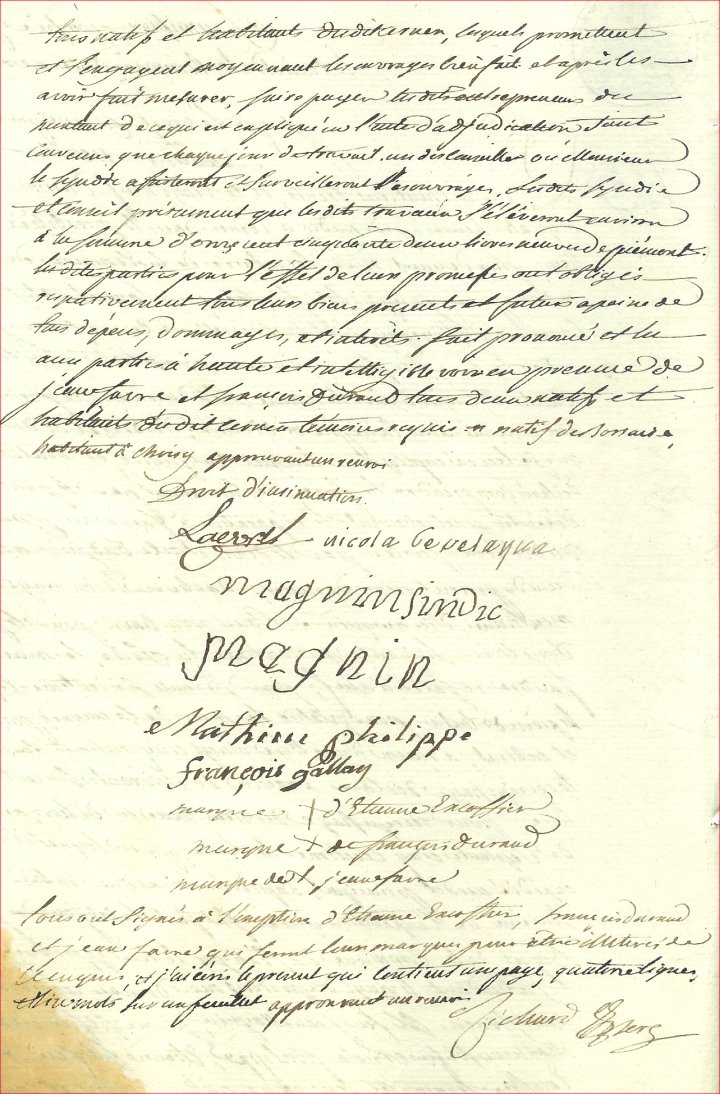 tous natifs et habitants dudit arnen, lesquels promettent
et s'engagent moyennant les ouvrages bien fait et après les
avoir fait mesurer, faire payer auxdits entrepreneurs du
montant de ce qui est expliqué en l'acte d'adjudication étant
convenu que chaque jour de travail un des conseiller ou Monsieur
le syndic assisteront et surveilleront les ouvrages. Lesdits syndic
et conseil présument que lesdits travaux s'élèveront environ
à la somme d'onze cent cinquante deux livres neuves de piémont.
lesdites parties pour l'éffet de leur promesse ont obligés
respectivement tous leurs biens présents et futurs a peine de
tous dépens, dommages, et intérêts. fait prononcé et lu
aux parties à haute et intelligible voix en présence de
jean favre et françois Durand tous deux natifs et
habitants dudit témoins requis natif de
habitant à Choisy approuvant un renvoi
Droit d'insinuation.
nicola Bevelaqua
magnin sindic
magnin
Mathieu philippe
françois gallay
marque + d'Etienne Excoffier
marque + de françois durand
marque de + jean favre
Tous ont signés à l'exception d'Etienne Excoffier, françois durand
et jean favre qui feront leurs marques pour être illitérés de
ce enquis, et j'ai écris le présent qui contient une page, quatorze lignes,
et six mots sur un feuillet approuvant un renvoi
Richard